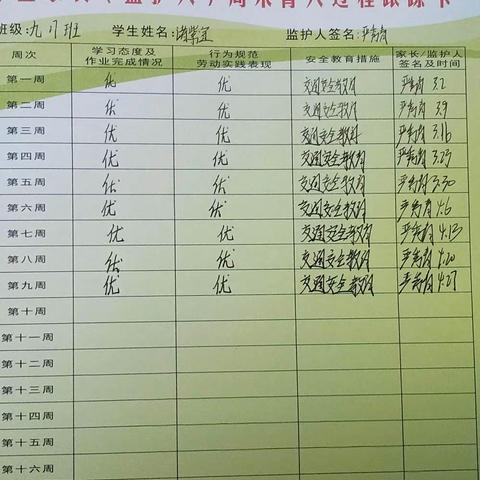 监护人 周末育人过程跟踪卡
班级: 九 班 学生姓名: 监护人签名:
周次 学习态度及作业完成情况 行为规范劳动实践表现 安全教育措施 家长/监护人签名及时间
第一周 优 优 交通安全教育 3.2
第二周 优 优 交通安全教育 3.9
第三周 优 优 交通安全教育 3.16
第四周 优 优 交通安全教育 3.23
第五周 优 优 交通安全教育 3.30
第六周 优 优 交通安全教育 4.6
第七周 优 优 交通安全教育 4.13
第八周 优 优 交通安全教育 4.20
第九周 优 优 交通安全教育 4.27
第十周
第十一周
第十二周
第十三周
第十四周
第十五周
第十六周